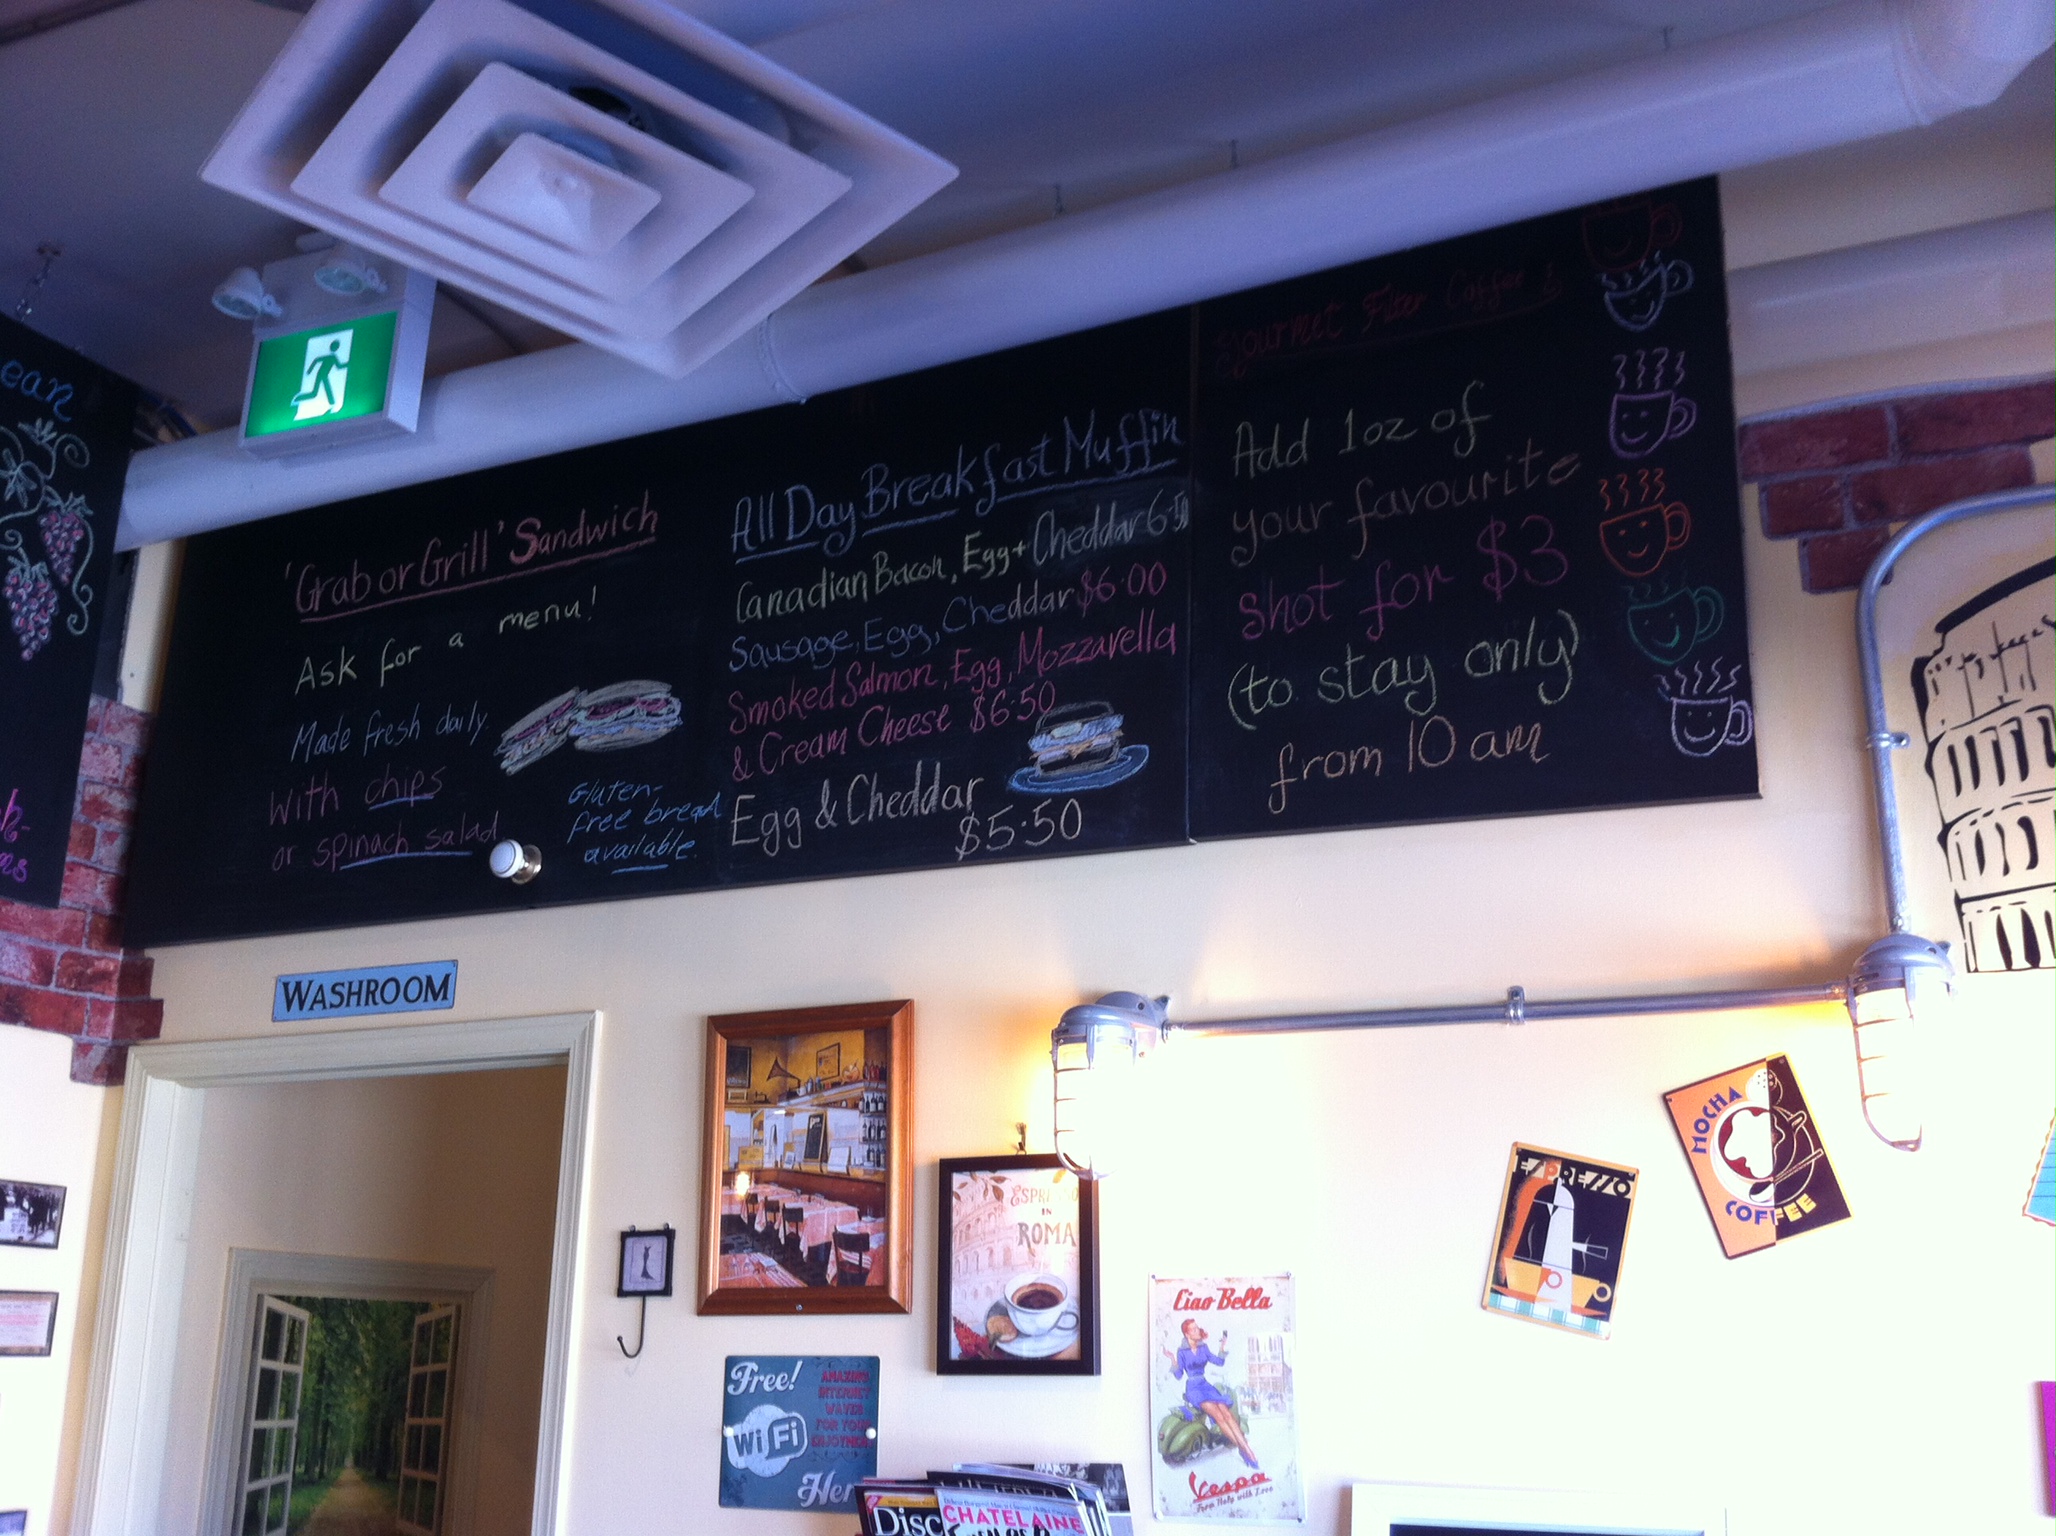 ean
'Grab or Grill' Sandwich
Ask for a menu!
Made fresh daily.
With chips
or spinach salad
Gluten-
free bread
available.
All Day Breakfast Muffin
Canadian Bacon, Egg + Cheddar 6.50
Sausage, Egg, Cheddar $6.00
Smoked Salmon, Egg, Mozzarella
& Cream Cheese $6.50
Egg & Cheddar
$5.50
Gourmet Filter Coffee
Add 1oz of
your favourite
shot for $3
(to stay only)
from 10 am
WASHROOM
ESPRESSO
IN
ROMA
Free!
WiFi
AMAZING
INTERNET
WAVES
FOR YOUR
ENJOYMENT
Her
Ciao Bella
Vespa
From Italy with Love
ESPRESSO
MOCHA
COFFEE
Disc
CHATELAINE